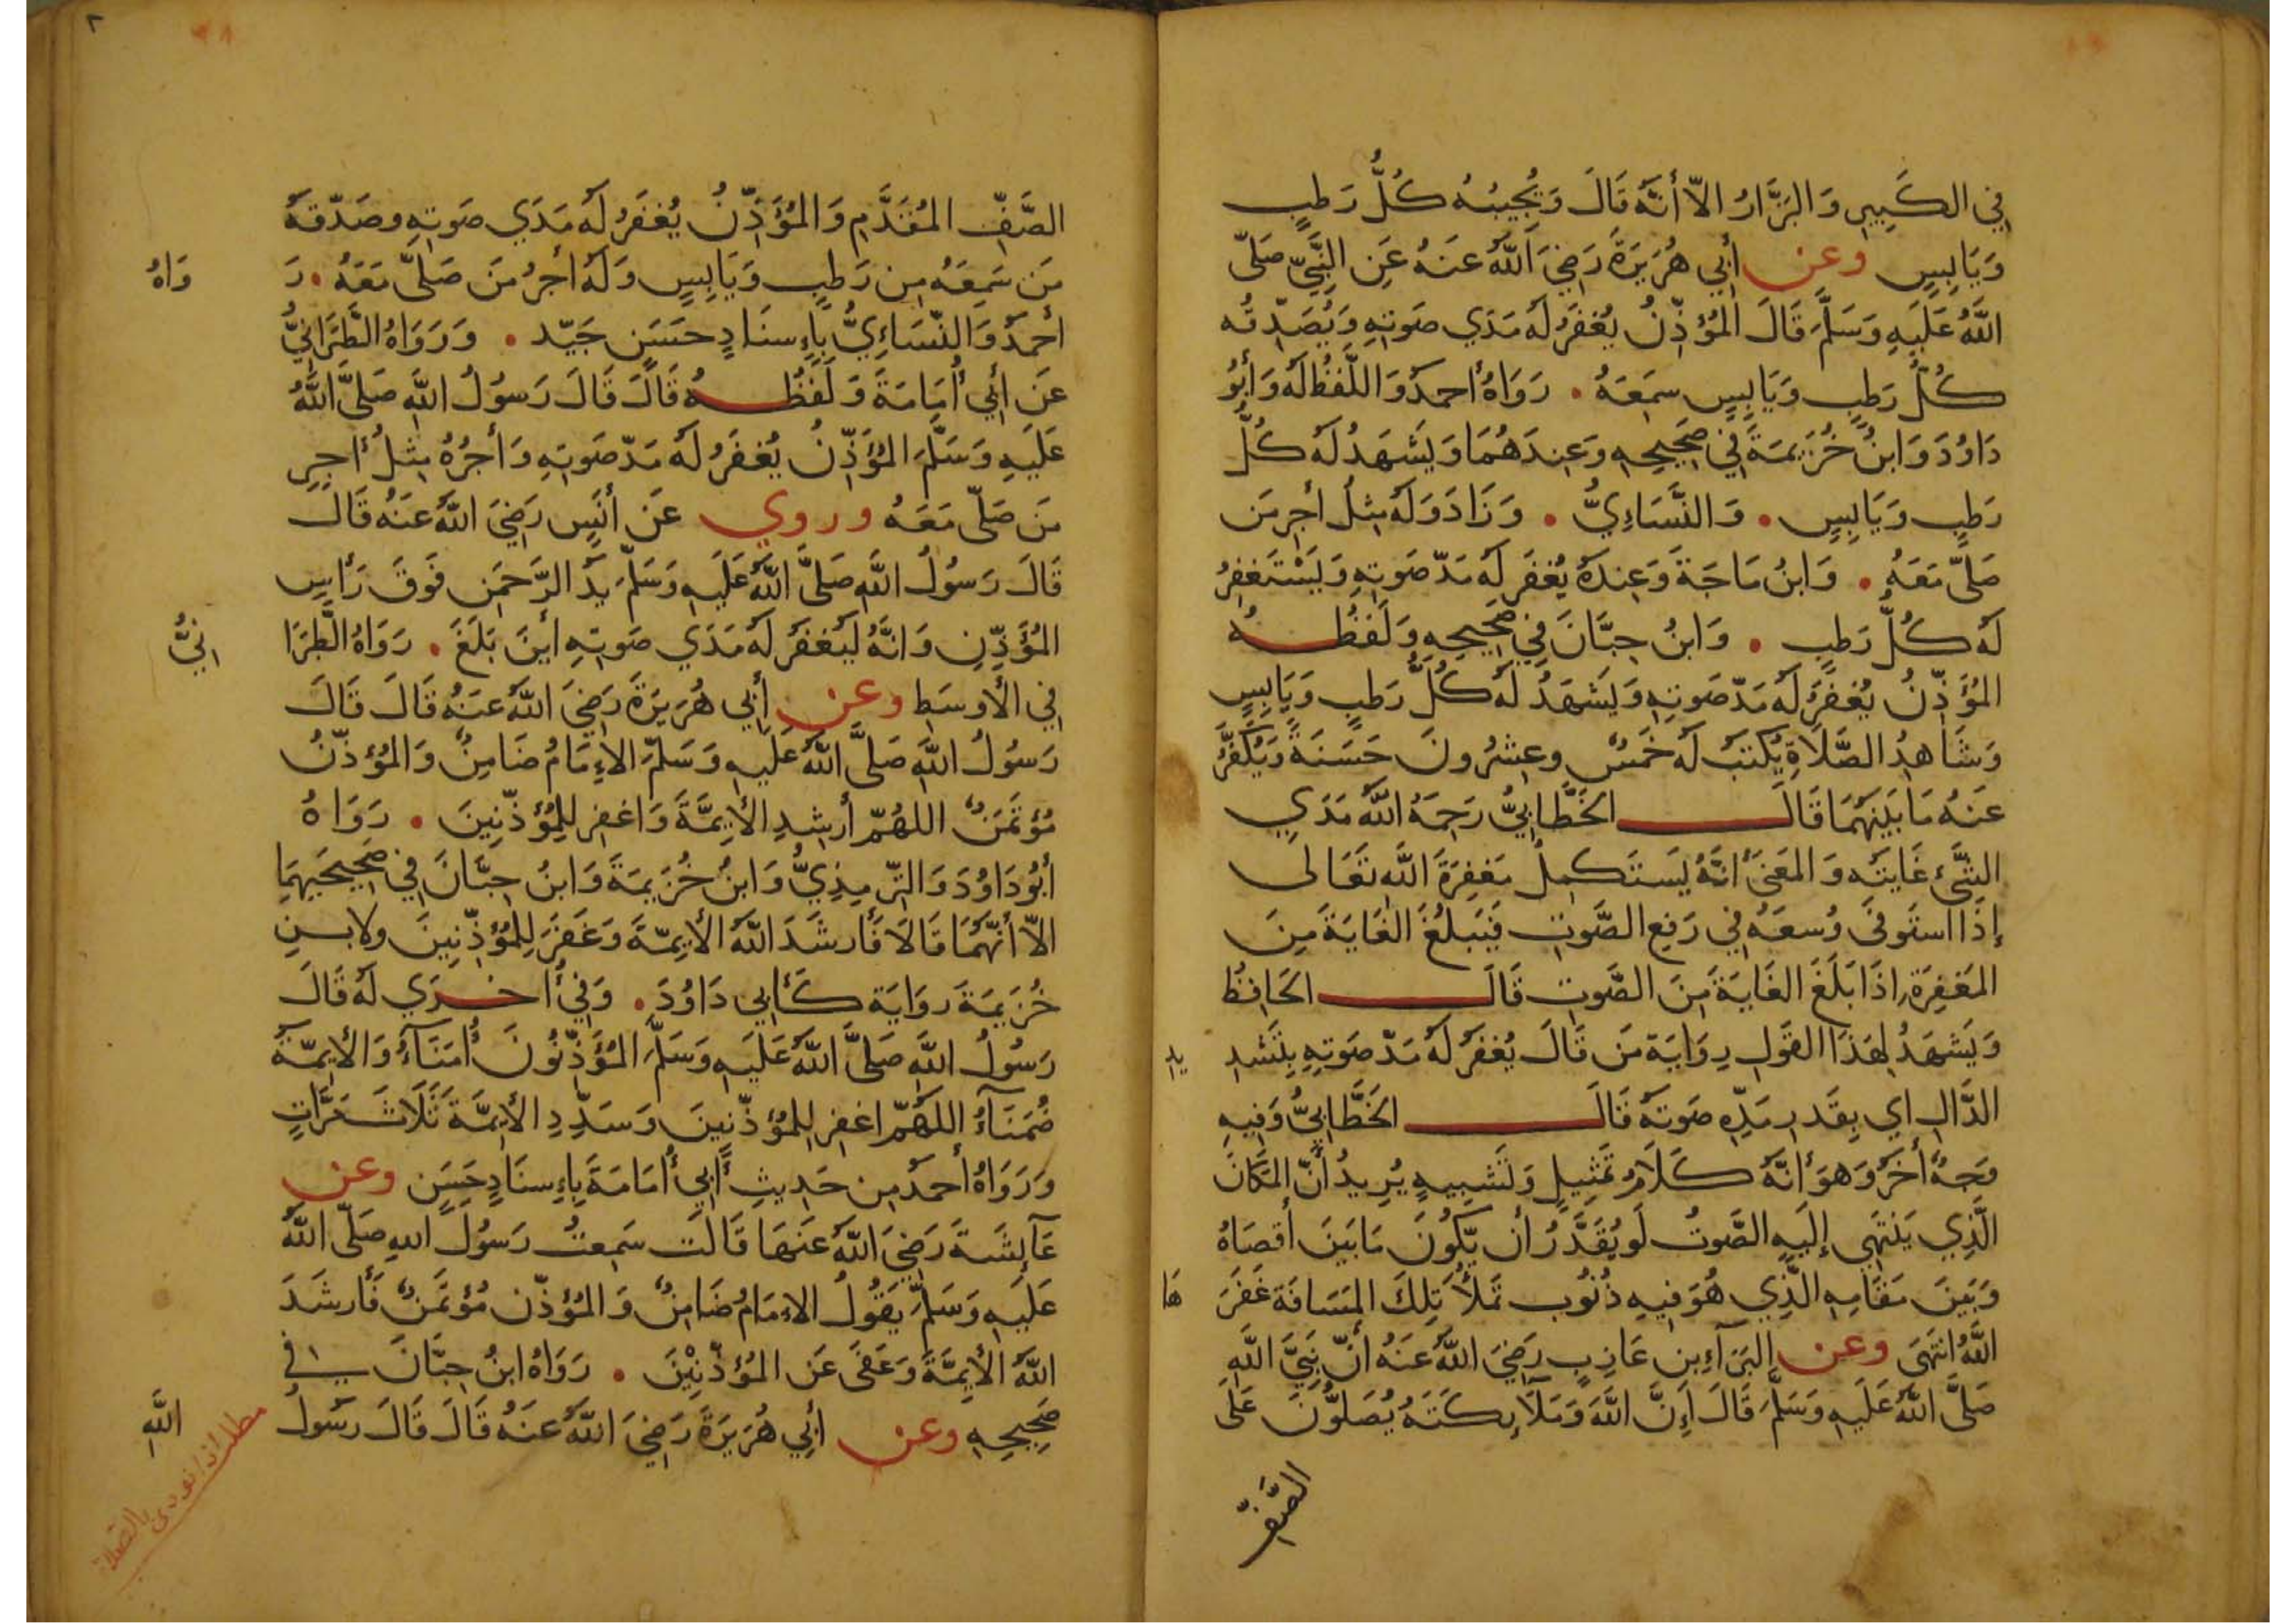 في الكَبِيرِ وَالبَزَّارُ الاّ أنَّهُ قَالَ وَيُجِيبُهُ كُلُّ رَطبٍ
وَيَابِسٍ وعن أبِي هُرَيرَةَ رَضِيَ اللَّهُ عَنهُ عَنِ النَّبِيِّ صَلّى
اللَّهُ عَلَيهِ وَسَلَّمَ قَالَ المُؤذِّنُ يُغفَرُ لَهُ مَدَي صَوتِهِ وَيُصَدِّقُه
كُلُّ رَطبٍ وَيَابِسٍ سمِعَهُ . رَوَاهُ أحمدُ وَاللَّفظُ لَهُ وَأبُو
دَاوُدَ وَابنُ خُزَيمَةَ فِي صَحِيحِهِ وَعِندَهُمَا وَيَشهَدُ لَهُ كُلُّ
رَطبٍ وَيَابِسٍ . وَالنَّسَاءِيُّ . وَزَادَ وَلَهُ مِثلُ أجرِ مَن
صَلّى مَعَهُ . وَابنُ مَاجَةَ وَعِندَهُ يُغفَرُ لَهُ مَدّ صَوتِهِ وَيَستَغفِرُ
لَهُ كُلُّ رَطبٍ . وَابنُ حِبَّانَ فِي صَحِيحِهِ وَلَفظُهُ
المُؤَذِّنُ يُغفَرُ لَهُ مَدّ صَوتِهِ وَيَشهَدُ لَهُ كُلُّ رَطبٍ وَيَابِسٍ
وَشَاهِدُ الصَّلَاةِ يُكتَبُ لَهُ خَمسٌ وعِشرُونَ حَسَنَةً وَيُكَفَّرُ
عَنهُ مَا بَينَهُمَا قَالَ الخَطَّابِيُّ رَحِمَهُ اللَّهُ مَدَي
الشَّيْءِ غَايَتَه وَالمَعنَى أنَّهُ يَستَكمِلُ مَغفِرَةَ اللَّهِ تَعَالى
إذَا استَوفَى وُسعَهُ فِي رَفعِ الصَّوتِ فَيَبلُغُ الغَايَةَ مِنَ
المَغفِرَةِ إذَا بَلَغَ الغَايَةَ مِنَ الصَّوتِ قَالَ الحَافِظُ
وَيَشهَدُ لِهَذَا القَولِ رِوَايَة مَن قَالَ يُغفَرُ لَهُ مَدّ صَوتِهِ بِتَشدِ
يدِ
الدَّالِ اي بِقَدرِ مَدِّهِ صَوتَهُ قَالَ الخَطَّابِيُّ وَفِيهِ
وَجهٌ أخَر وَهوَ أنَّهُ كَلَامُ تَمثِيلٍ وَتَشبِيهٍ يُرِيدُ أنّ المَكَانَ
الَّذِي يَنتَهِي إلَيهِ الصَّوتُ لَو يُقَدَّرُ أن يّكُونَ مَا بَينَ أقصَاهُ
وَبَينَ مَقَامِهِ الَّذِي هُوَ فِيهِ ذُنُوب تَملَأُ تِلكَ المَسَافَةَ غَفَرَ
هَا
اللَّهُ انتَهَى وعن البَرَآءِ بنِ عَازِبٍ رَضِيَ اللَّهُ عَنهُ أنّ نَبِيَّ اللَّهِ
صَلَّى اللَّهُ عَلَيهِ وَسَلَّمَ قَالَ إنَّ اللَّهَ وَمَلَآئِكَتَهُ يُصَلُّونَ عَلَى
الصَّفِّ
٢
الصَّفِّ المُقَدَّمِ وَالمُؤَذِّنُ يُغفَرُ لَهُ مَدَي صَوتِهِ وصَدّقَهُ
مَن سَمِعَهُ مِن رَطبٍ وَيَابِسٍ وَلَهُ أجرُ مَن صَلَّى مَعَهُ . رَ
وَاهُ
أحمدُ وَالنّسَاءِيُّ بِإسنَادٍ حَسَنٍ جَيّد . وَرَوَاهُ الطَّبَرَانِيُّ
عَن أبِي أُمَامَةَ وَلَفظُهُ قَالَ قَالَ رَسُولُ اللَّهِ صَلَّى اللَّهُ
عَلَيهِ وَسَلَّمَ المُؤَذِّنُ يُغفَرُ لَهُ مَدّ صَوتِهِ وَأجرُهُ مِثلُ أجرِ
مَن صَلّى مَعَهُ وروي عَن أنَسٍ رَضِيَ اللَّهُ عَنهُ قَالَ
قَالَ رَسُولُ اللَّهِ صَلَّى اللَّهُ عَلَيهِ وَسَلّمَ يَدُ الرَّحمَنِ فَوقَ رَأسِ
المُؤَذِّنِ وَانَّهُ لَيُغفَرُ لَهُ مَدَي صَوتِهِ أينَ بَلَغَ . رَوَاهُ الطَّبَرَا
نِيُّ
فِي الأوسَطِ وعن أبِي هُرَيرَةَ رَضِيَ اللَّهُ عَنهُ قَالَ قَالَ
رَسُولُ اللَّهِ صَلَّى اللَّهُ عَلَيهِ وَسَلّمَ الإمَامُ ضَامِنٌ وَالمُؤذّنُ
مُؤتَمَنٌ اللهُمّ أرشِدِ الأيِمَّةَ وَاغفِر لِلمُؤذّنِينَ . رَوَاهُ
أبُو دَاوُدَ وَالتّرمِذِيُّ وَابنُ خُزَيمَةَ وَابنُ حِبَّانَ فِي صَحِيحَيهِمَا
الاّ أنّهُمَا قَالَا فَأرشَدَ اللَّهُ الأيِمّةَ وَغَفَرَ لِلمُؤذِّنِينَ ولابنِ
خُزَيمَةَ رِوَايَة كَأبِي دَاوُدَ . وَفِي أخرَي لَهُ قَالَ
رَسُولُ اللَّهِ صَلَّى اللَّهُ عَلَيهِ وَسَلَّمَ المُؤَذِّنُونَ أُمَنَآءُ وَالأيِمّةُ
ضُمَنَآءُ اللَهُمّ اغفِر لِلمُؤذّنِينَ وَسَدِّدِ الأيِمَّةَ ثَلَاثَ مَرَّاتٍ
وَرَوَاهُ أحمَدُ مِن حَدِيثِ أبِي أُمَامَةَ بِإسنَادٍ حَسَنٍ وعن
عَآئِشَةَ رَضِيَ اللَّهُ عَنهَا قَالَت سَمِعتُ رَسُولَ اللهِ صَلّى اللَّهُ
عَلَيهِ وَسَلّمَ يَقُولُ الإمَامُ ضَامِنٌ وَالمُؤذّن مُؤتَمَنٌ فَأرشَدَ
اللَّهُ الأيِمَّةَ وَعَفَى عَنِ المُؤذّنِيْنَ . رَوَاهُ ابنُ حِبَّانَ في
صَحِيحِهِ وعن أبِي هُرَيرَةَ رَضِيَ اللَّهُ عَنهُ قَالَ قَالَ رَسُولُ
اللَّهِ
مطلب اذا نودي بالصلاة